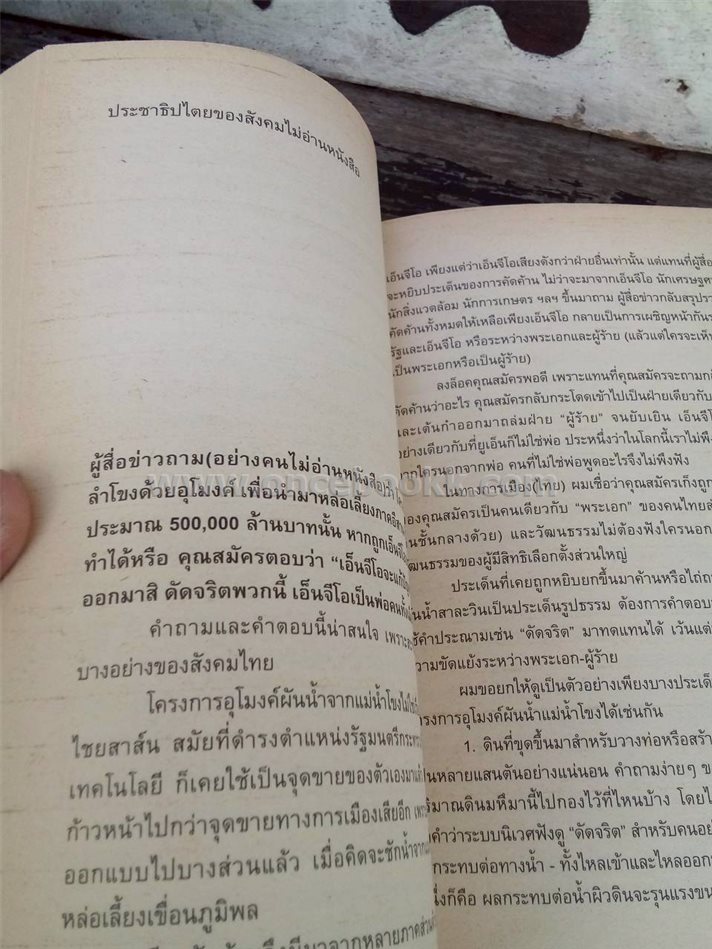 ประชาธิปไตยของสังคมไม่อ่านหนังสือ
ผู้สื่อข่าวถาม(อย่างคนไม่อ่านหนังสือ)ว่า
ลำโขงด้วยอุโมงค์ เพื่อนำมาหล่อเลี้ยงภาคอีสาน
ประมาณ 500,000 ล้านบาทนั้น หากถูกเอ็นจีโอ
ทำได้หรือ คุณสมัครตอบว่า “เอ็นจีโอจะแก้ปัญหา
ออกมาสิ ดัดจริตพวกนี้ เอ็นจีโอเป็นพ่อคนทั้ง
คำถามและคำตอบนี้น่าสนใจ เพราะ
บางอย่างของสังคมไทย
โครงการอุโมงค์ผันน้ำจากแม่น้ำโขงไม่ใช่
ไชยสาส์น สมัยที่ดำรงตำแหน่งรัฐมนตรีกระทรวง
เทคโนโลยี ก็เคยใช้เป็นจุดขายของตัวเองมาแล้ว
ก้าวหน้าไปกว่าจุดขายทางการเมืองเสียอีก เพราะ
ออกแบบไปบางส่วนแล้ว เมื่อคิดจะชักน้ำจาก
หล่อเลี้ยงเขื่อนภูมิพล
เอ็นจีโอ เพียงแต่ว่าเอ็นจีโอเสียงดังกว่าฝ่ายอื่นเท่านั้น แต่แทนที่ผู้สื่อ
จะหยิบประเด็นของการคัดค้าน ไม่ว่าจะมาจากเอ็นจีโอ นักเศรษฐศ
นักสิ่งแวดล้อม นักการเกษตร ฯลฯ ขึ้นมาถาม ผู้สื่อข่าวกลับสรุปรว
คัดค้านทั้งหมดให้เหลือเพียงเอ็นจีโอ กลายเป็นการเผชิญหน้ากันร
รัฐและเอ็นจีโอ หรือระหว่างพระเอกและผู้ร้าย (แล้วแต่ใครจะเห็น
เป็นพระเอกหรือเป็นผู้ร้าย)
ลงล็อคคุณสมัครพอดี เพราะแทนที่คุณสมัครจะถามกลั
คัดค้านว่าอะไร คุณสมัครกลับกระโดดเข้าไปเป็นฝ่ายเดียวกับ
และเต้นกำออกมาถล่มฝ่าย “ผู้ร้าย” จนยับเยิน เอ็นจีโ
อย่างเดียวกับที่ยูเอ็นก็ไม่ใช่พ่อ ประหนึ่งว่าในโลกนี้เราไม่พึง
จากใครนอกจากพ่อ คนที่ไม่ใช่พ่อพูดอะไรจึงไม่พึงฟัง
ในทางการเมืองไทย) ผมเชื่อว่าคุณสมัครเก็งถูก
ของคุณสมัครเป็นคนเดียวกับ “พระเอก” ของคนไทยส่
นชั้นกลางด้วย) และวัฒนธรรมไม่ต้องฟังใครนอก
วัฒนธรรมของผู้มีสิทธิเลือกตั้งส่วนใหญ่
ประเด็นที่เคยถูกหยิบยกขึ้นมาค้านหรือไถ่ถา
น้ำสาละวินเป็นประเด็นรูปธรรม ต้องการคำตอบ
ใช้คำประณามเช่น “ดัดจริต” มาทดแทนได้ เว้นแต่
ความขัดแย้งระหว่างพระเอก-ผู้ร้าย
ผมขอยกให้ดูเป็นตัวอย่างเพียงบางประเด็
โครงการอุโมงค์ผันน้ำแม่น้ำโขงได้เช่นกัน
1. ดินที่ขุดขึ้นมาสำหรับวางท่อหรือสร้า
นหลายแสนตันอย่างแน่นอน คำถามง่ายๆ ข
ริมาณดินมหึมานี้ไปกองไว้ที่ไหนบ้าง โดยไ
คำว่าระบบนิเวศฟังดู “ดัดจริต” สำหรับคนอย่
กระทบต่อทางน้ำ - ทั้งไหลเข้าและไหลออก
นึ่งก็คือ ผลกระทบต่อน้ำผิวดินจะรุนแรงขน